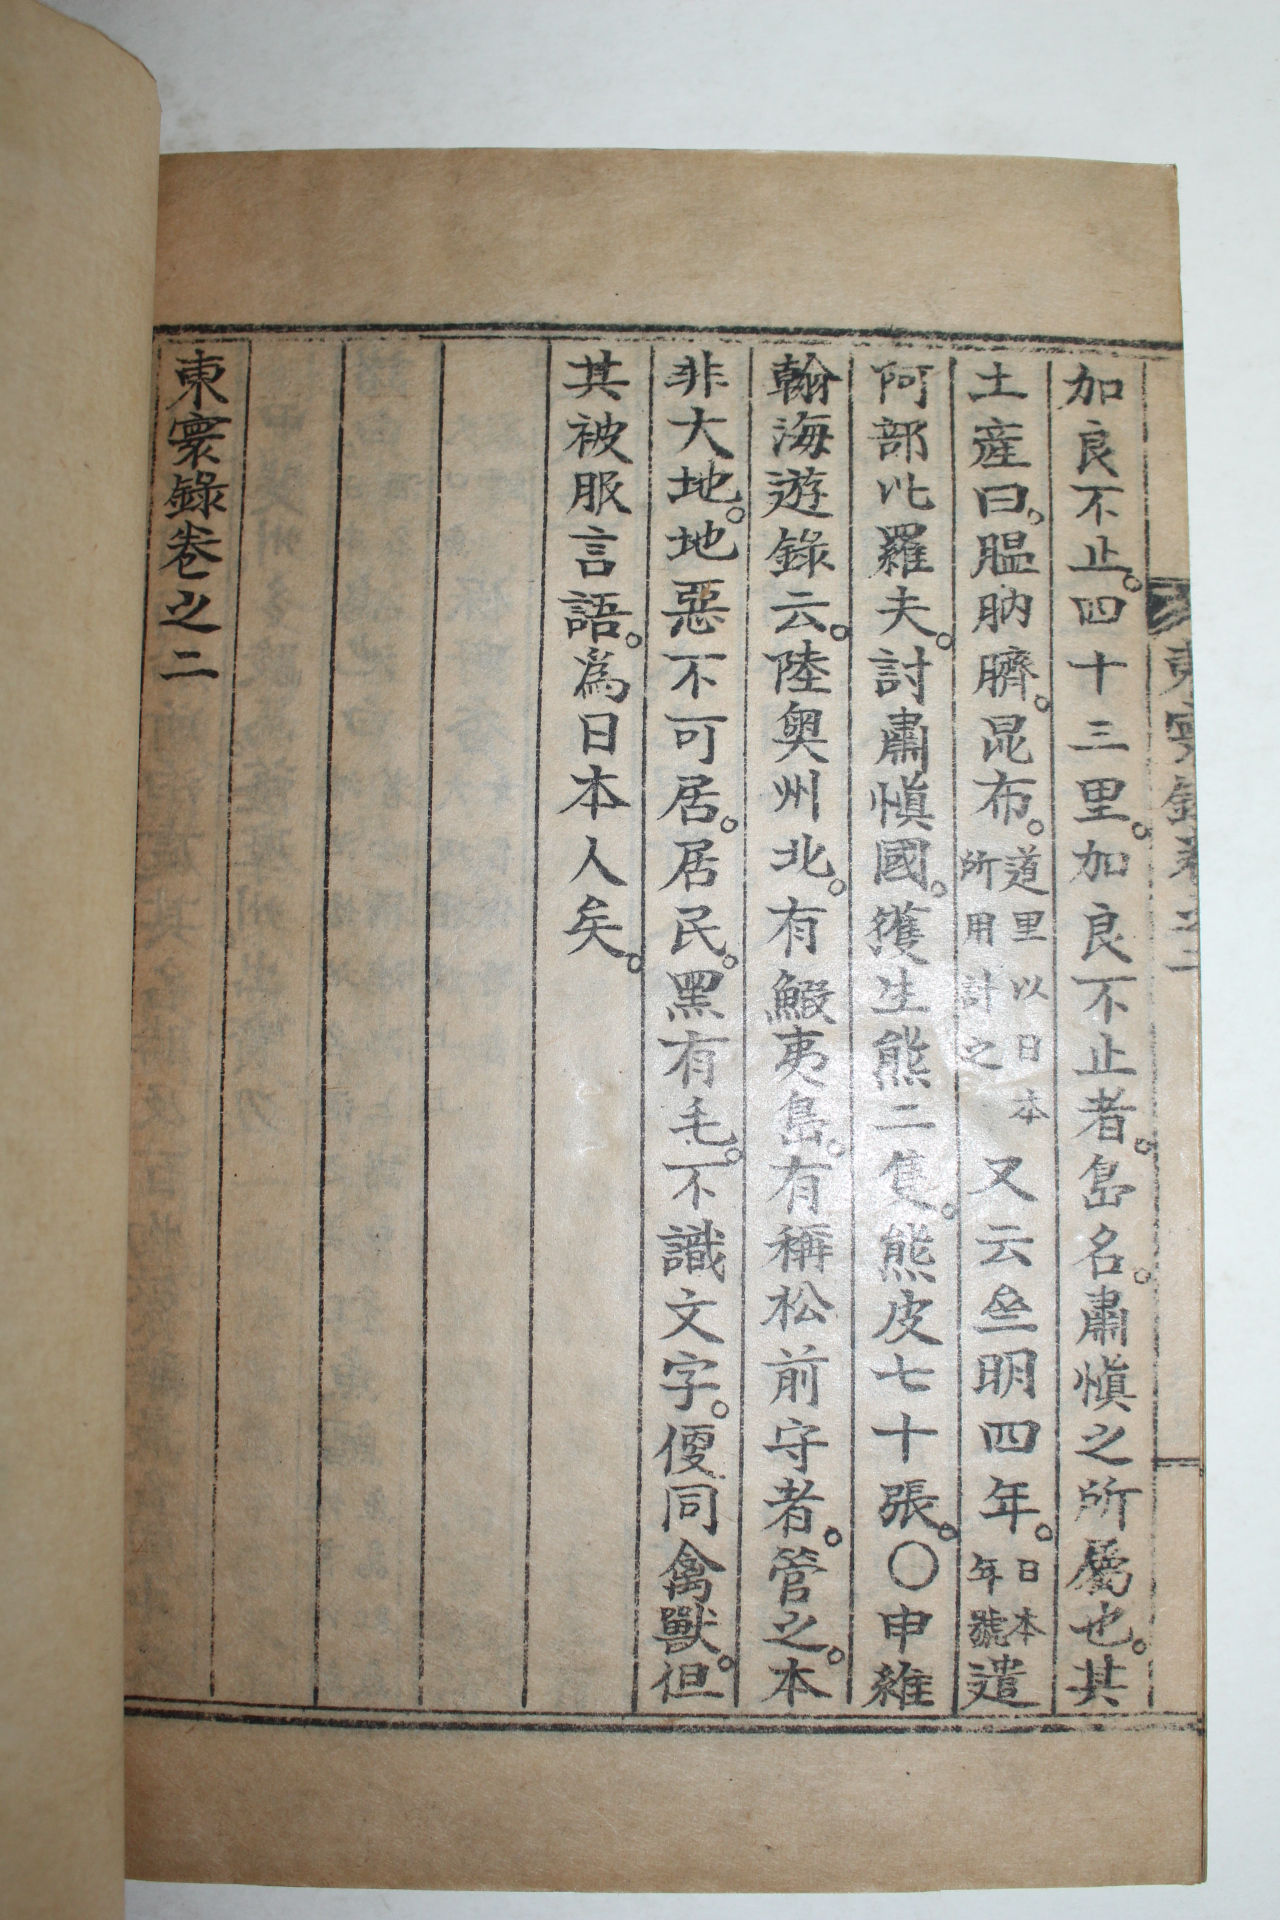 加良不止。四十三里。加良不止者。島名。肅愼之所屬也。其
土產曰。膃肭臍。昆布。道里以日本所用計之又云亝明四年。日本年號遣
阿部比羅夫。討肅愼國。獲生熊二隻。熊皮七十張。〇申維
翰海遊錄云。陸奧州北。有鰕夷島。有稱松前守者。管之。本
非大地。地惡不可居。居民。黑有毛。不識文字。便同禽獸。但
其被服言語。爲日本人矣。
東寰錄卷之二